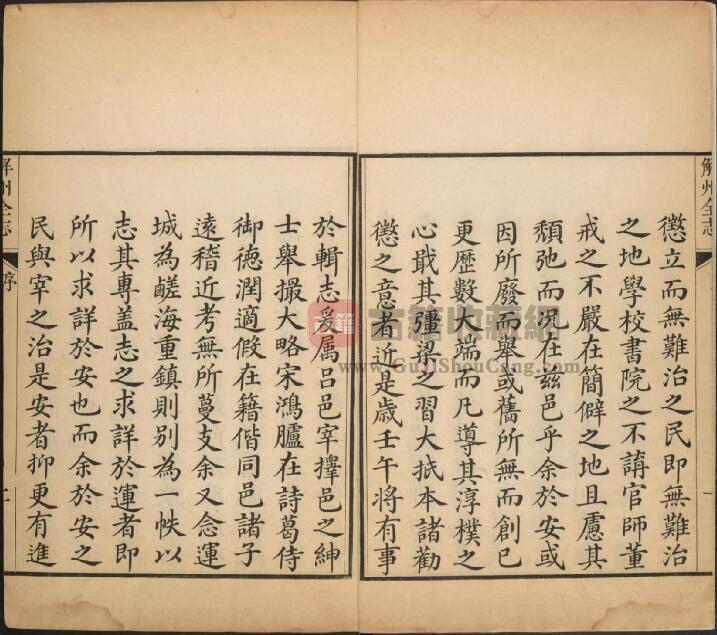 解州全志
一
懲立而無難治之民即無難治
之地學校書院之不講官師董
戒之不嚴在簡僻之地且慮其
頹弛而況在兹邑乎余於安或
因所廢而舉或舊所無而創已
更歷數大端而凡導其淳樸之
心戢其彊梁之習大抵本諸勸
懲之意者近是歲壬午將有事
於輯志爰属吕邑宰擇邑之紳
士舉撮大略宋鴻臚在詩葛侍
御徳潤適假在籍偕同邑諸子
遠稽近考無所蔓支余又念運
城為鹺海重鎮則别為一帙以
志其專盖志之求詳於運者即
所以求詳於安也而余於安之
民與宰之治是安者抑更有進
解州全志
序
二
古籍
www.GujiShouCang.com